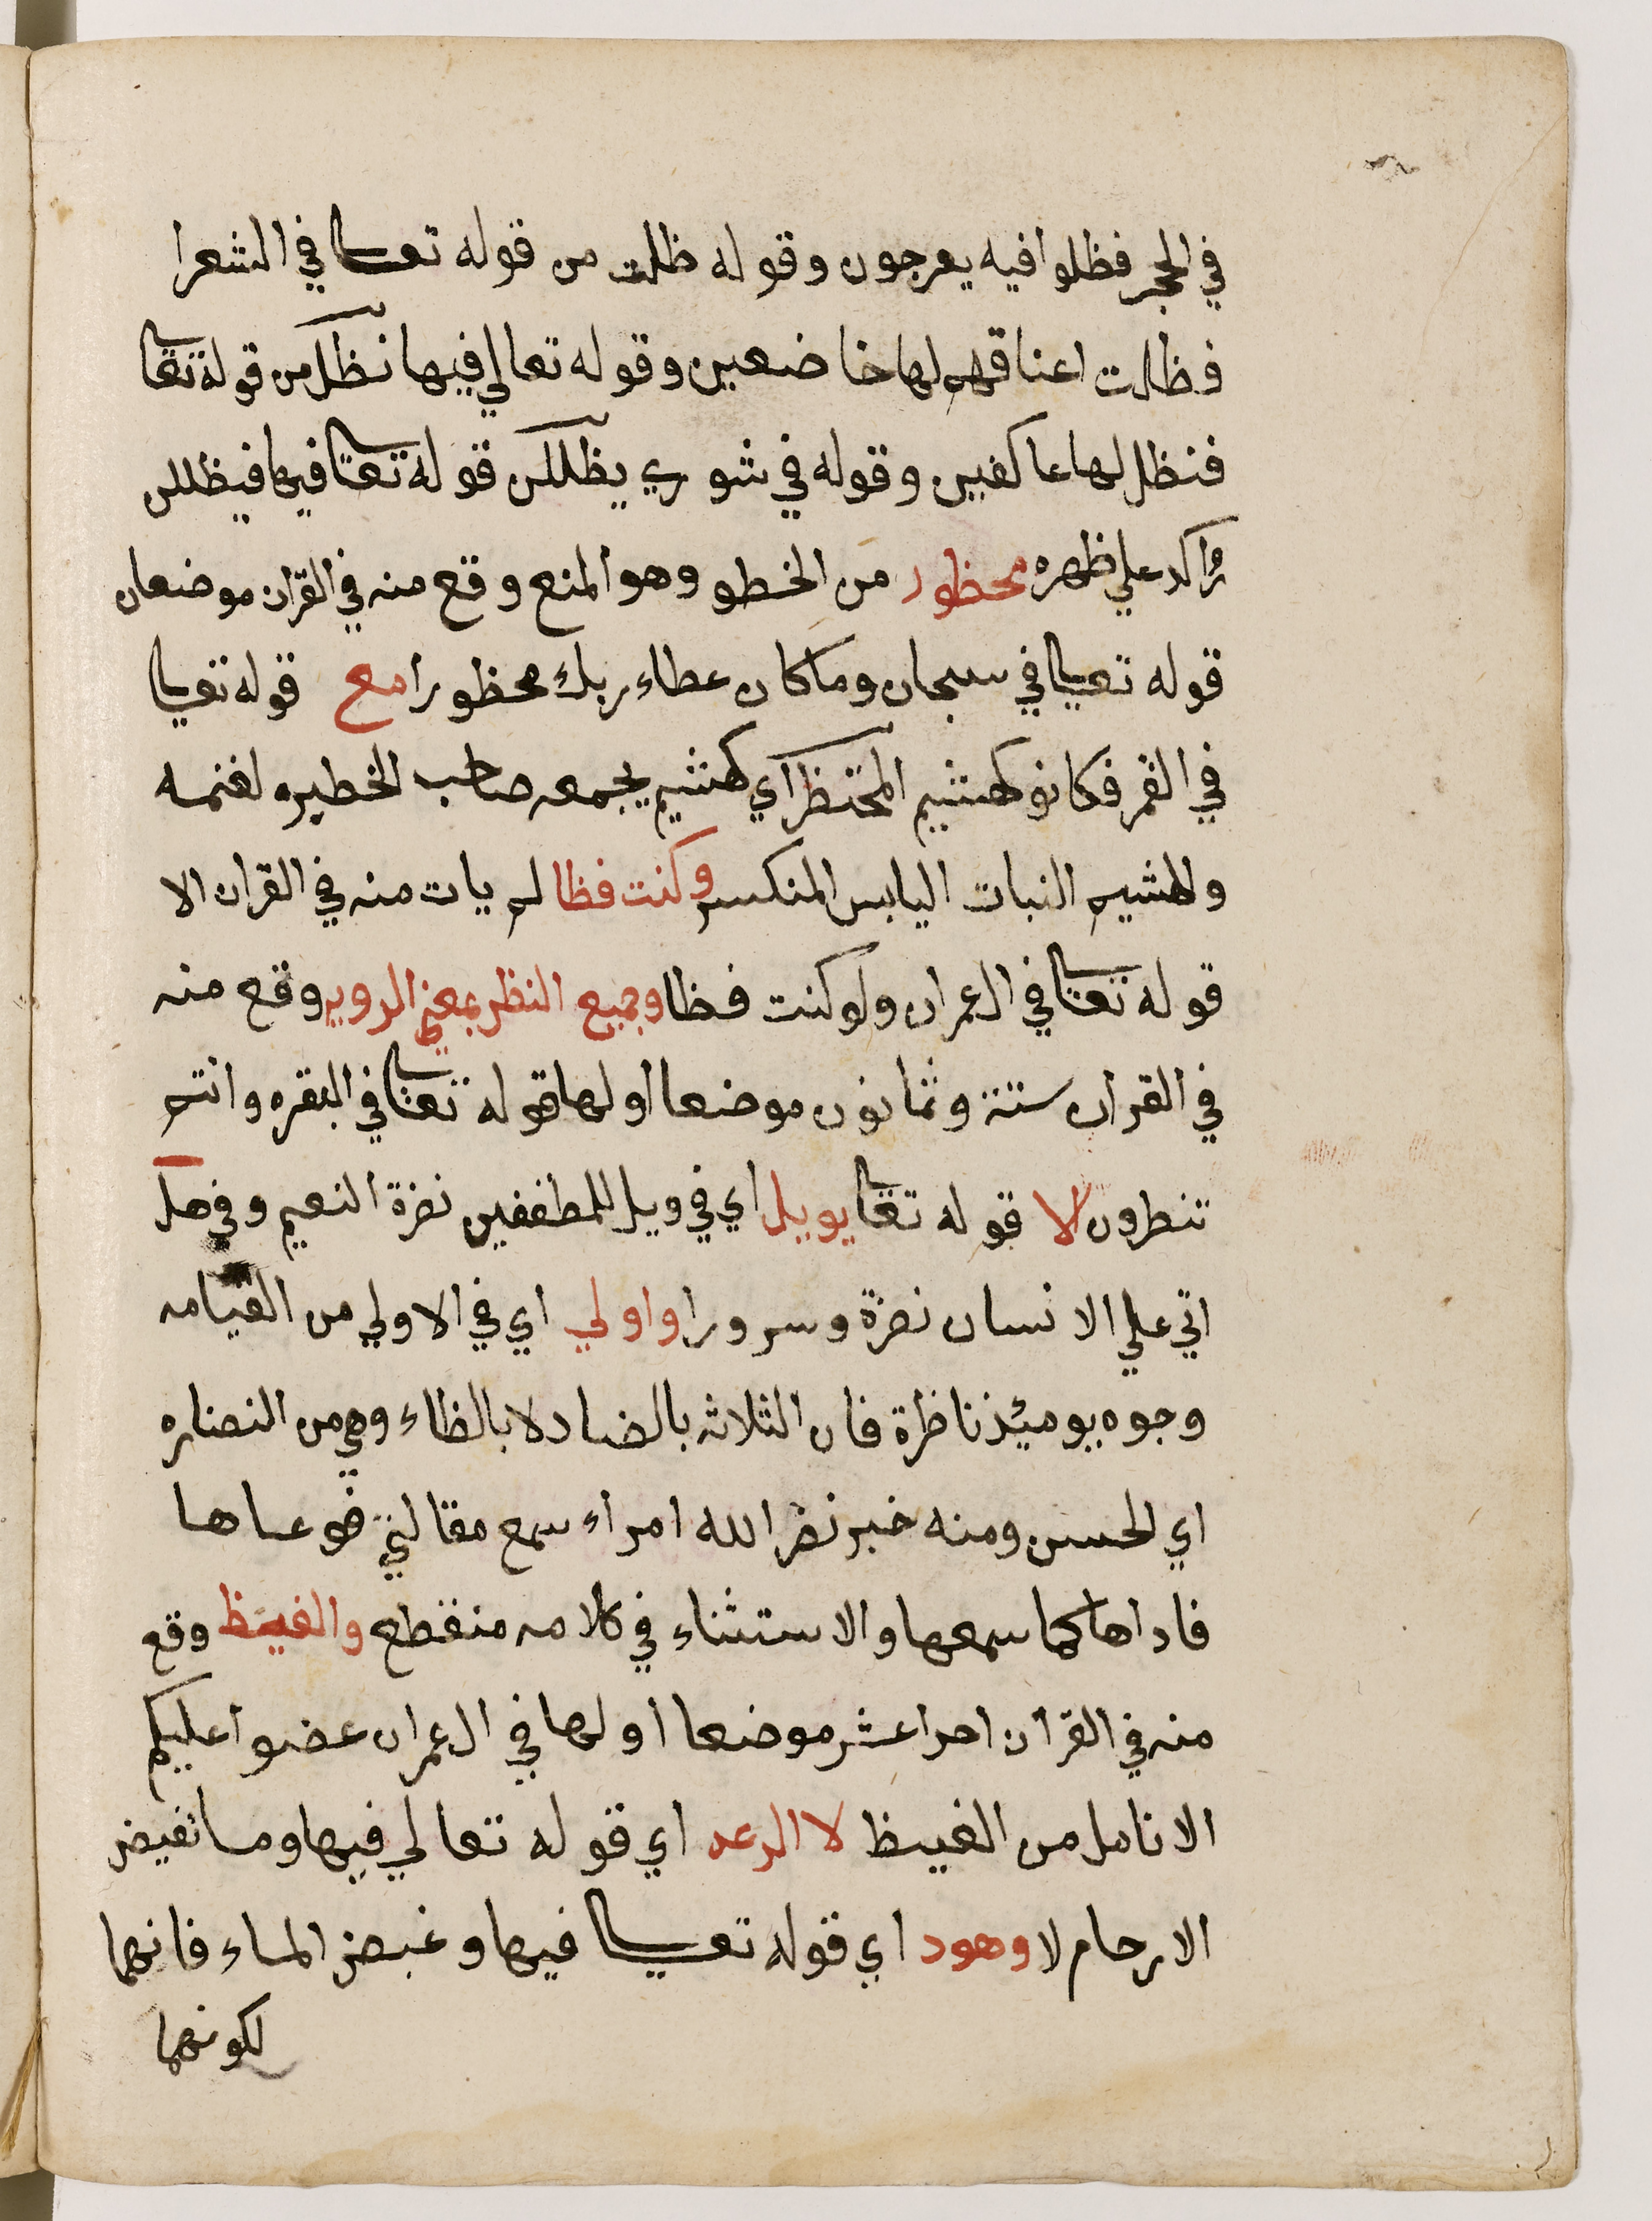 في الحجر فظلوا فيه يعرجون وقوله ظلت من قوله تعالى في الشعرا
فظلت اعناقهم لها خاضعين وقوله تعالي فيها نظل من قوله تعا
فنظل لها عاكفين وقوله في شوري يظللن قوله تعا فيها فيظللن
رواكد علي ظهره محظور من الخطو وهو المنع وقع منه في القران موضعان
قوله تعالى في سبحان وماكان عطاء ربك محظورا مع قوله تعالى
في القمر فكانو كهشيم المحتظر اي كهشيم يجمعه صاحب الخطيره لغنمه
والهشيم النبات اليابس المنكسر وكنت فظا لم يات منه في القران الا
قوله تعا في ال عمران ولو كنت فظا وجميع النظر بمعني الرويه وقع منه
في القران ستة وثمانون موضعا اولها قوله تعا في البقره وانتم
تنطرون الا قوله تعا بويل اي في ويل للمطففين نضرة النعيم وفي هل
اتي علي الانسان نضرة وسرورا واولي اي في الاولي من القيامه
وجوه يوميئذ ناظرة فان الثلاثه بالضاد لا بالظاء وهي من النضاره
اي الحسن ومنه خبر نضر الله امراء سمع مقالتي فوعاها
فاداها كما سمعها والاستثناء في كلامه منقطع والغيظ وقع
منه في القرآن احد اعشر موضعا اولها في ال عمران عضوا عليكم
الانامل من الغيظ لا الرعد اي قوله تعالي فيها وما تغيض
الارحام لا وهود اي قوله تعالى فيها وغيض الماء فانهما
لكونهما